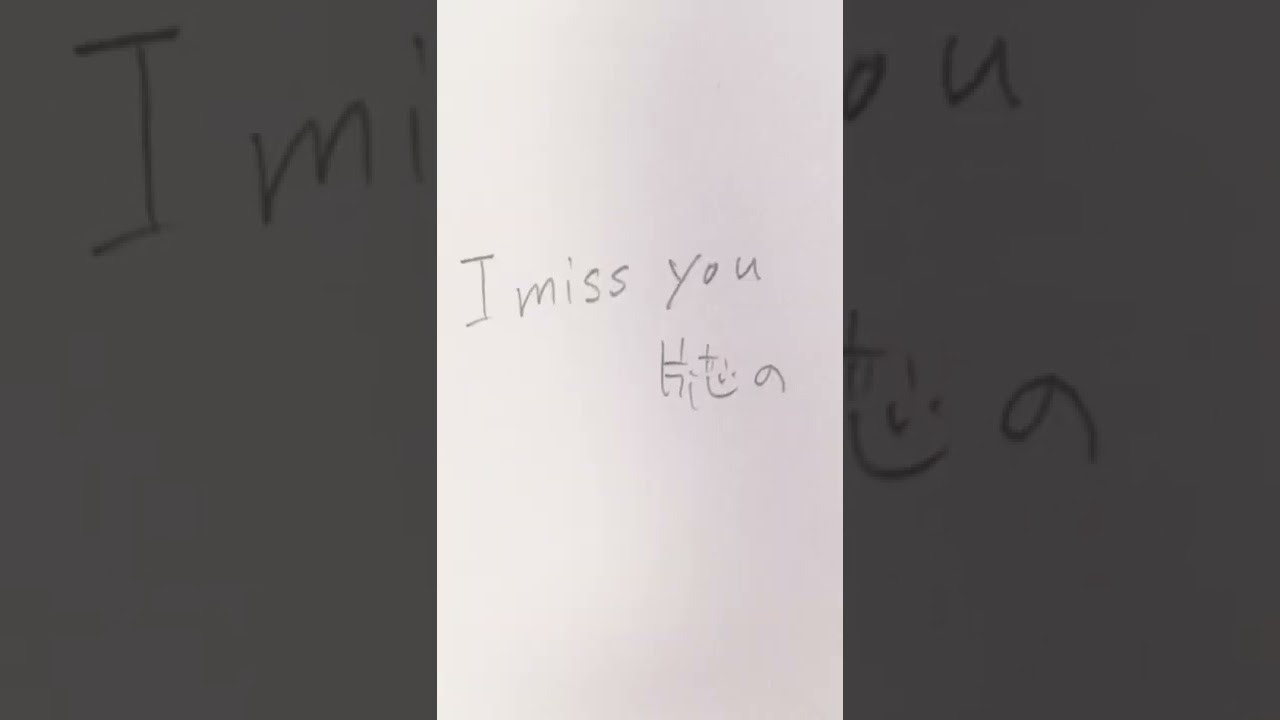 I miss you
片恋の